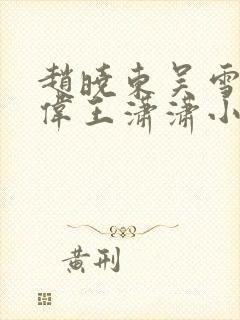 趙曉東吴雪
偉王瀟瀟小
黄刑